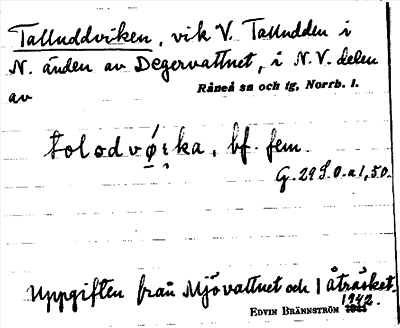 Talluddviken, vik V. Talludden i
N. änden av Degervattnet, i N.V. delen
av
Råneå sn och tg, Norrb. l.
tolodvø̨ı̨ka, bf. fem.
G. 29 S.O. a 1,50.
Uppgiften från Mjövattnet och 1 Åträsket.
EDVIN BRÄNNSTRÖM 1942.